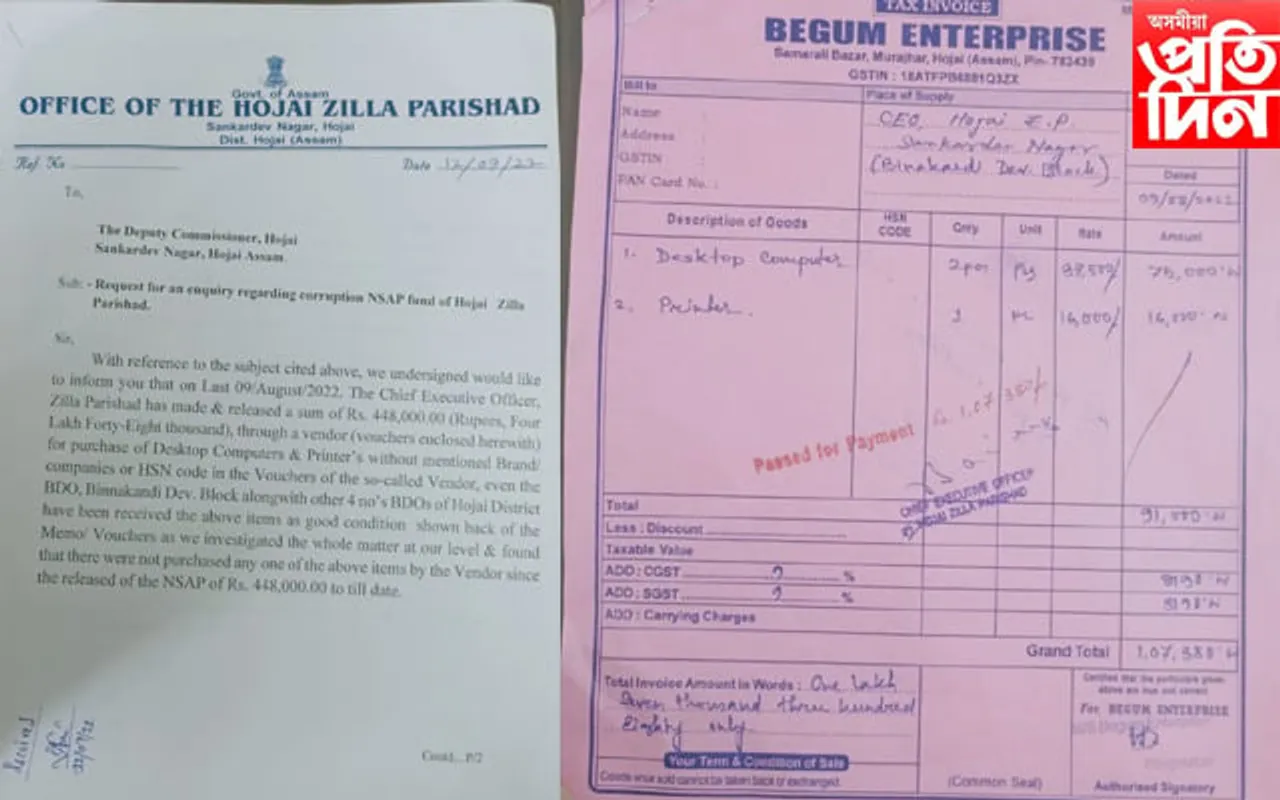 Govt. of Assam
OFFICE OF THE HOJAI ZILLA PARISHAD
Sankardev Nagar, Hojai
Dist. Hojai (Assam)
Ref. No
Date 12/09/22
To,
The Deputy Commissioner, Hojai
Sankardev Nagar, Hojai Assam
Sub: - Request for an enquiry regarding corruption NSAP fund of Hojai Zilla
Parishad.
Sir,
With reference to the subject cited above, we undersigned would like
to inform you that on Last 09/August/2022. The Chief Executive Officer,
Zilla Parishad has made & released a sum of Rs. 448,000.00 (Rupees, Four
Lakh Forty-Eight thousand), through a vendor (vouchers enclosed herewith)
for purchase of Desktop Computers & Printer's without mentioned Brand/
companies or HSN code in the Vouchers of the so-called Vendor, even the
BDO, Binnakandi Dev. Block alongwith other 4 no's BDOs of Hojai District
have been received the above items as good condition shown back of the
Memo/ Vouchers as we investigated the whole matter at our level & found
that there were not purchased any one of the above items by the Vendor since
the released of the NSAP of Rs. 448,000.00 to till date.
Received
Contd...P/2
TAX INVOICE
BEGUM ENTERPRISE
Samarali Bazar, Murajhar, Hojai (Assam), Pin- 782439
GSTIN :
Bill to
Place of Supply
Name :
Address :
GSTIN :
PAN Card No. :
CEO, Hojai Z.P.
Sankardev Nagar
(Binakandi Dev. Block)
Dated
Description of Goods
HSN CODE
Qnty
Unit
Rate
Amount
1. Desktop Computer
2. Printer.
1
16,000/
Passed for Payment
CHIEF EXECUTIVE OFFICER
HOJAI ZILLA PARISHAD
Total
Less : Discount
Taxable Value
ADD : CGST 9 %
ADD : SGST 9 %
ADD : Carrying Charges
Grand Total
Total Invoice Amount in Words : One lakh
Seven thousand three hundred
Eighty only
Your Term & Condition of Sale
Goods once sold cannot be taken back or exchanged.
(Common Seal)
Certified that the particulars given
above are true and correct
For BEGUM ENTERPRISE
Authorised Signatory
অসমীয়া
প্ৰতি
দিন